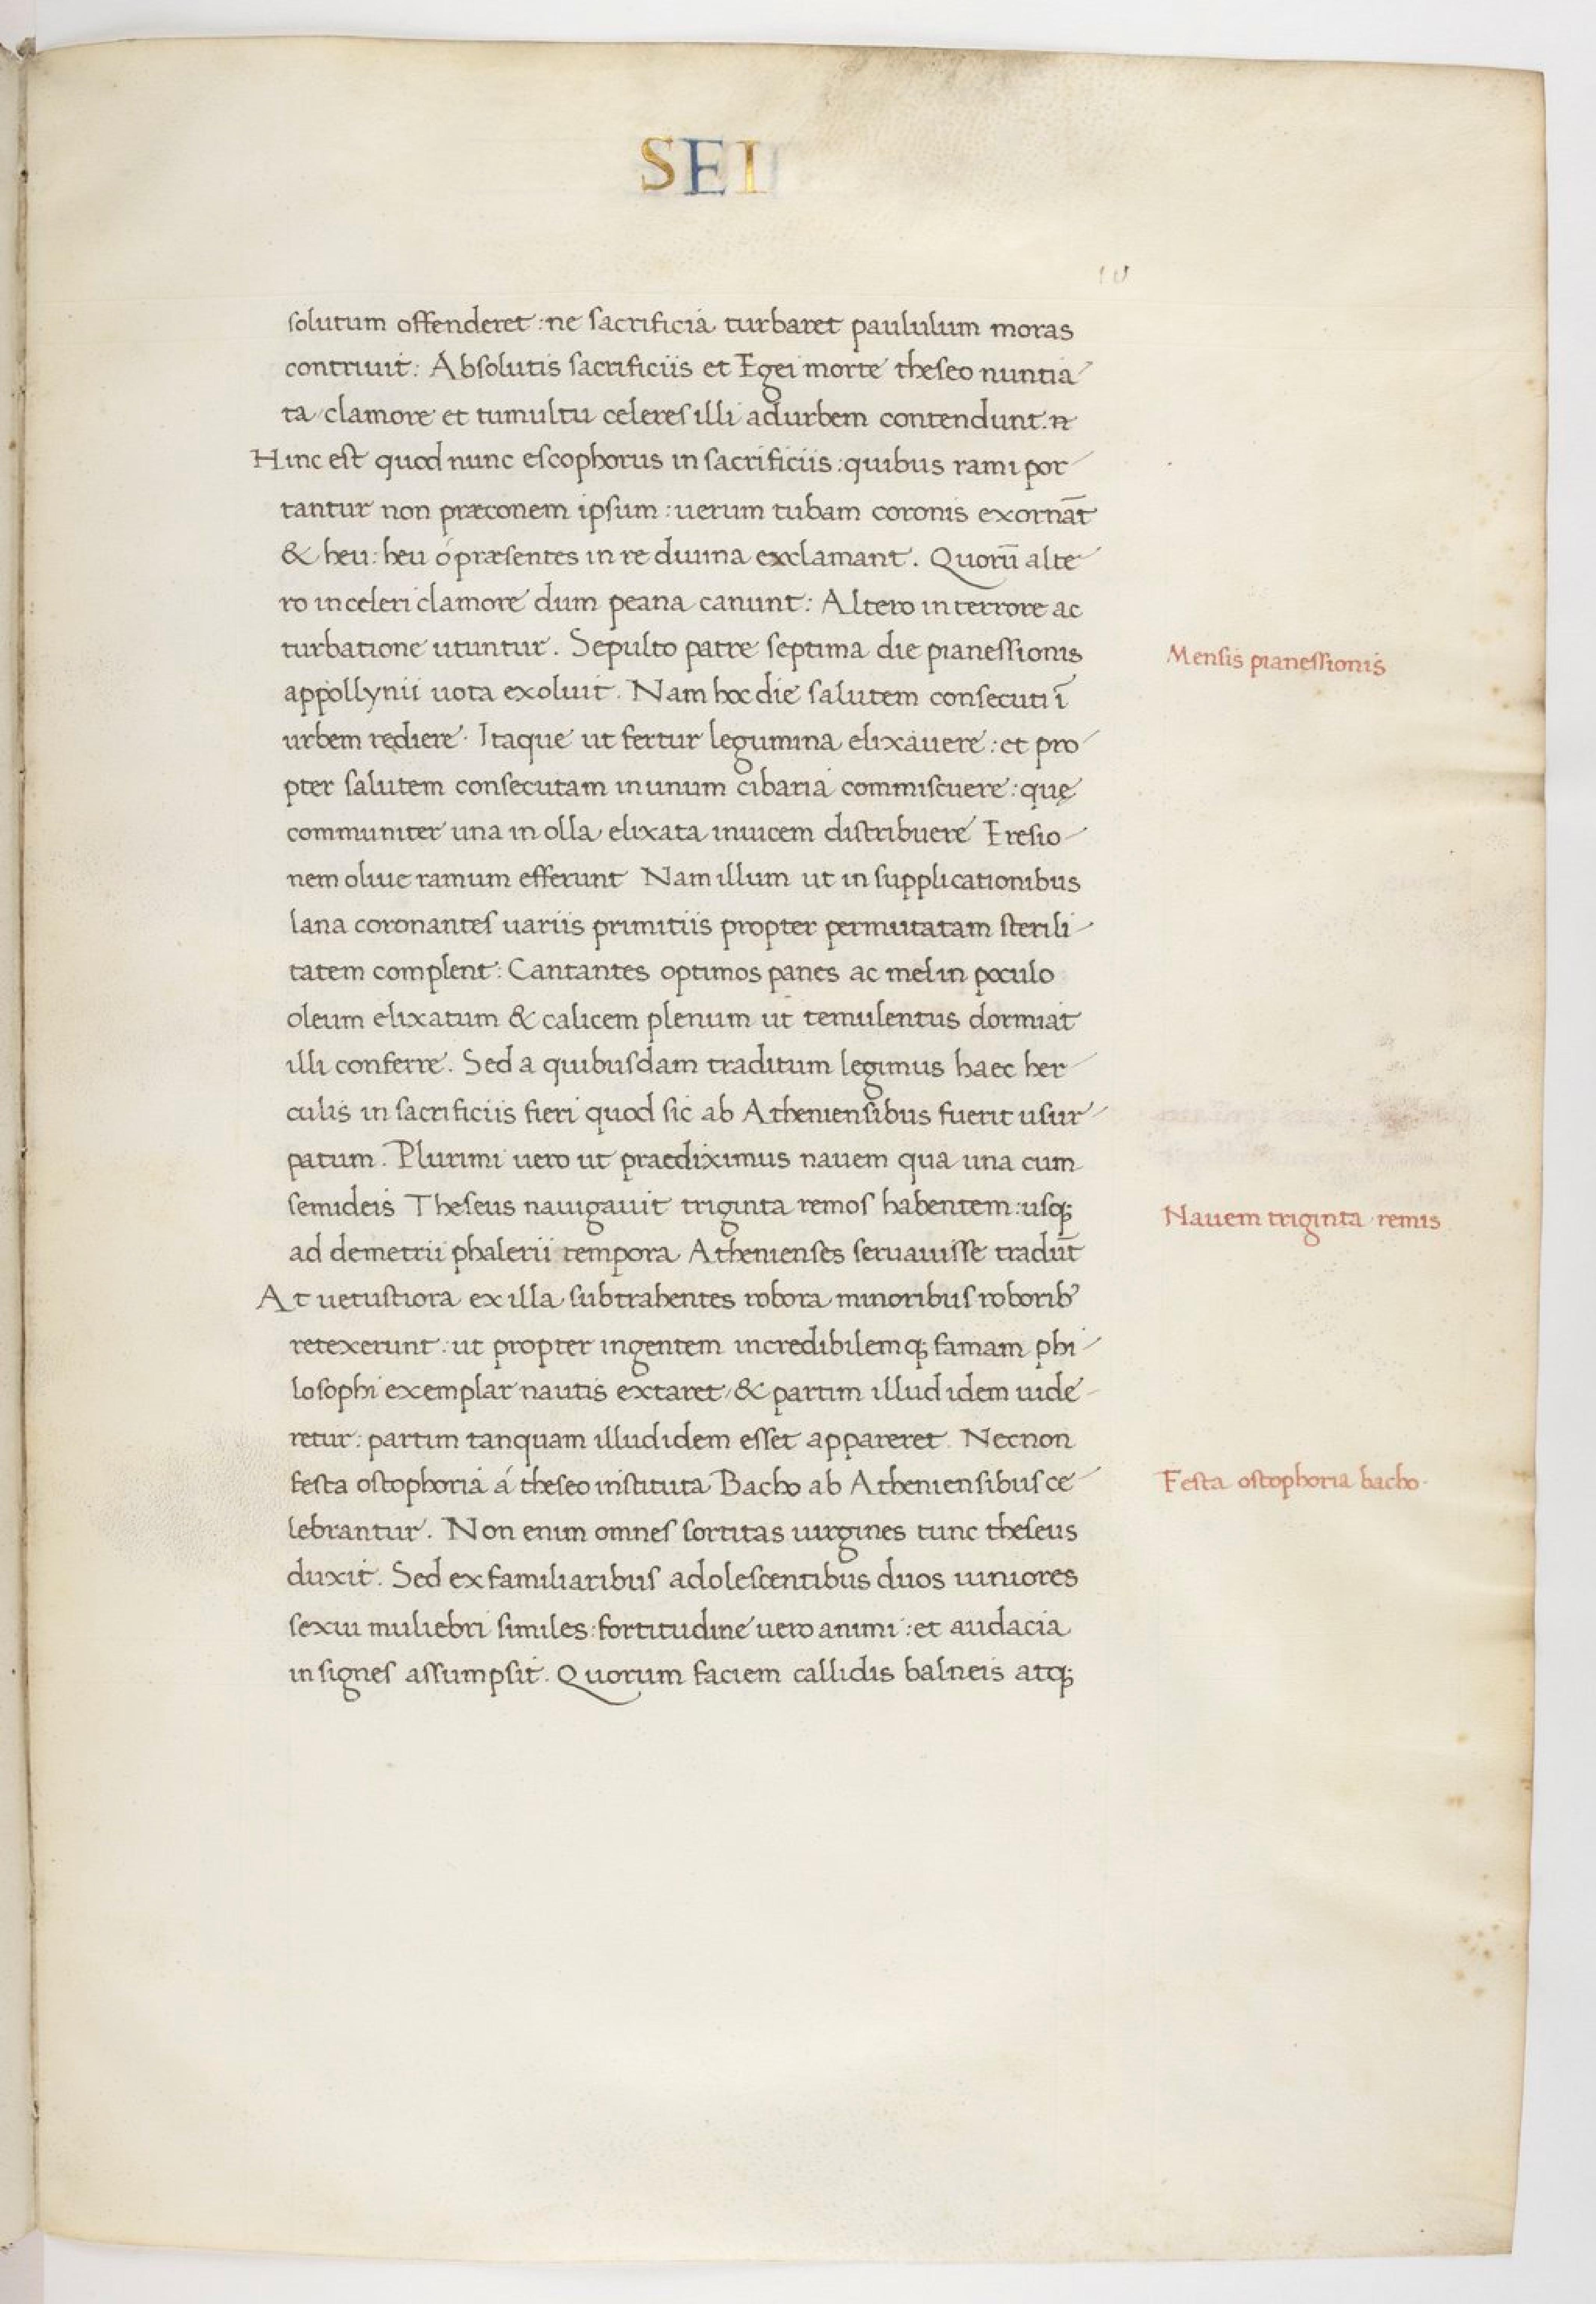 SEI
10
solutum offenderet: ne sacrificia turbaret paululum moras
contriuit: Absolutis sacrificiis et Egei morte theseo nuntia
ta clamore et tumultu celeres illi adurbem contendunt.
Hinc est quod nunc escophorus in sacrificiis: quibus rami por
tantur non præconem ipsum: uerum tubam coronis exornāt
& heu: heu ó præsentes in re diuina exclamant. Quorū alte
ro in celeri clamore dum peana canunt: Altero in terrore ac
turbatione utuntur. Sepulto patre septima die pianessionis
Mensis pianessionis
appollynii uota exoluit. Nam hoc die salutem consecuti ī
urbem rediere. Itaque ut fertur legumina elixauere: et pro
pter salutem consecutam in unum cibaria commiscuere: quę
communiter una in olla elixata inuicem distribuere Eresio
nem oliue ramum efferunt Nam illum ut in supplicationibus
lana coronantes uariis primitiis propter permutatam sterili
tatem complent: Cantantes optimos panes ac mel in poculo
oleum elixatum & calicem plenum ut temulentus dormiat
illi conferre. Sed a quibusdam traditum legimus haec her
culis in sacrificiis fieri quod sic ab Atheniensibus fuerit usur
patum. Plurimi uero ut praediximus nauem qua una cum
semideis Theseus nauigauit triginta remos habentem: usq;
Nauem triginta remis
ad demetrii phalerii tempora Athenienses seruauisse tradūt
At uetustiora ex illa subtrahentes robora minoribus roborib'
retexerunt: ut propter ingentem incredibilemq; famam phi
losophi exemplar nautis extaret / & partim illud idem uide
retur: partim tanquam illud idem esset appareret. Necnon
festa ostophoria á theseo instituta Bacho ab Atheniensibus ce
Festa ostophoria bacho.
lebrantur. Non enim omnes sortitas uirgines tunc theseus
duxit. Sed ex familiaribus adolescentibus duos iuniores
sexui muliebri similes: fortitudine uero animi: et audacia
insignes assumpsit. Quorum faciem callidis balneis atq;